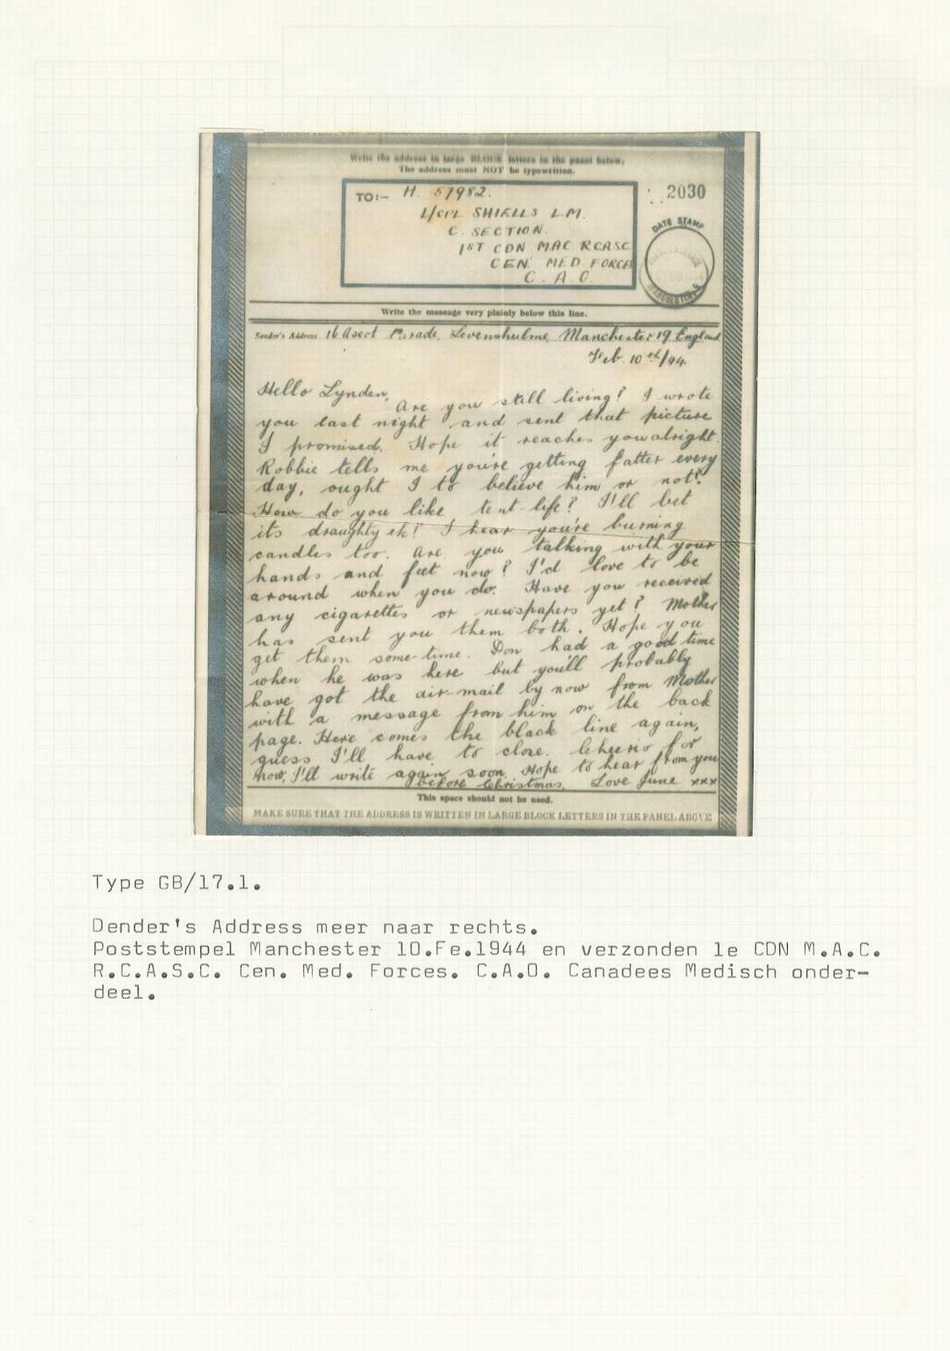 Write the address in large BLOCK letters in the panel below.
The address must NOT be typewritten.
TO:- H. 57982.
L/CPL SHIELLS L.M.
C. SECTION.
1ST CDN MAC RCASC
CEN. MED FORCES
C. A. O.
2030
DATE STAMP
Write the message very plainly below this line.
Sender's Address 16 Ascot Parade, Levenshulme, Manchester 19 England
Feb. 10th/44.
Hello Lynden,
Are you still living? I wrote
you last night and sent that picture
I promised. Hope it reaches you alright.
Robbie tells me you're getting fatter every
day, ought I to believe him or not?
How do you like tent-life? I'll bet
its draughty eh? I hear you're burning
candles too. Are you talking with your
hands and feet now? I'd love to be
around when you do. Have you received
any cigarettes or newspapers yet? Mother
has sent you them both. Hope you
get them some-time. Don had a good time
when he was here but you'll probably
have got the air-mail by now from Mother
with a message from him on the back
page. Here comes the black line again,
guess I'll have to close. Cheerio for
now, I'll write again soon. Hope to hear from you
before Christmas. Love June xxx
This space should not be used.
MAKE SURE THAT THE ADDRESS IS WRITTEN IN LARGE BLOCK LETTERS IN THE PANEL ABOVE
Type GB/17.1.
Dender's Address meer naar rechts.
Poststempel Manchester 10.Fe.1944 en verzonden 1e CDN M.A.C.
R.C.A.S.C. Cen. Med. Forces. C.A.O. Canadees Medisch onder-
deel.